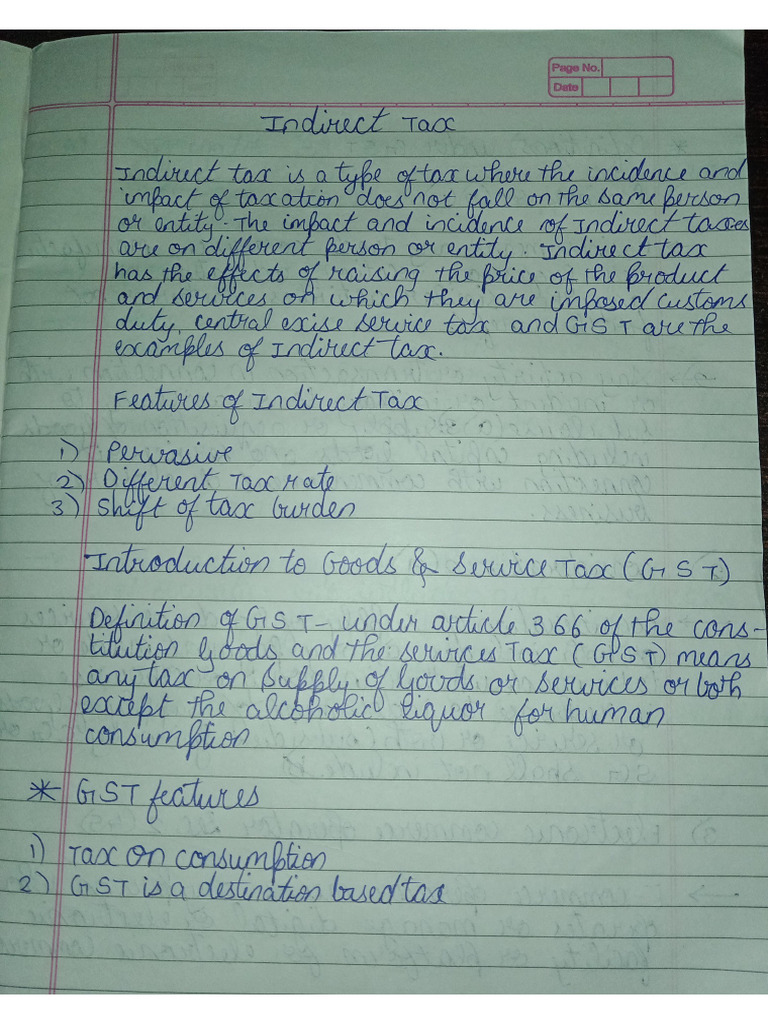 Page No.
Date
Indirect Tax
Indirect tax is a type of tax where the incidence and
impact of taxation does not fall on the same person
or entity. The impact and incidence of Indirect taxes
are on different person or entity. Indirect tax
has the effects of raising the price of the product
and services on which they are imposed customs
duty, central exise service tax and GST are the
examples of Indirect tax.
Features of Indirect Tax
1) Pervasive
2) Different Tax rate
3) Shift of tax burden
Introduction to Goods & Service Tax (GST)
Definition of GST - under article 366 of the cons-
titution Goods and the services Tax (GST) means
any tax on supply of Goods or services or both
except the alcoholic liquor for human
consumption
* GST features
1) Tax on consumption
2) GST is a destination based tax